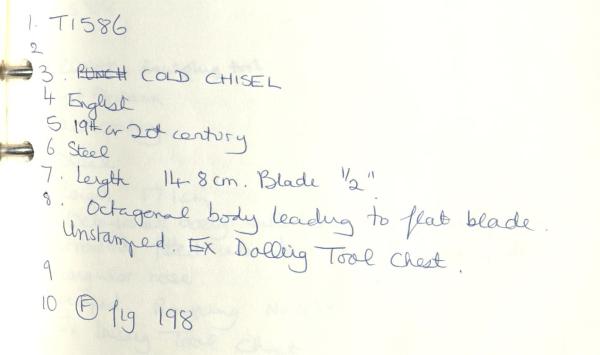 1. T1586
2
3. PUNCH COLD CHISEL
4 English
5 19th or 20th century
6 Steel
7. Length 14.8cm. Blade 1/2"
8. Octagonal body leading to flat blade.
Unstamped. Ex Dalling Tool Chest.
9
10 (F) fig 198